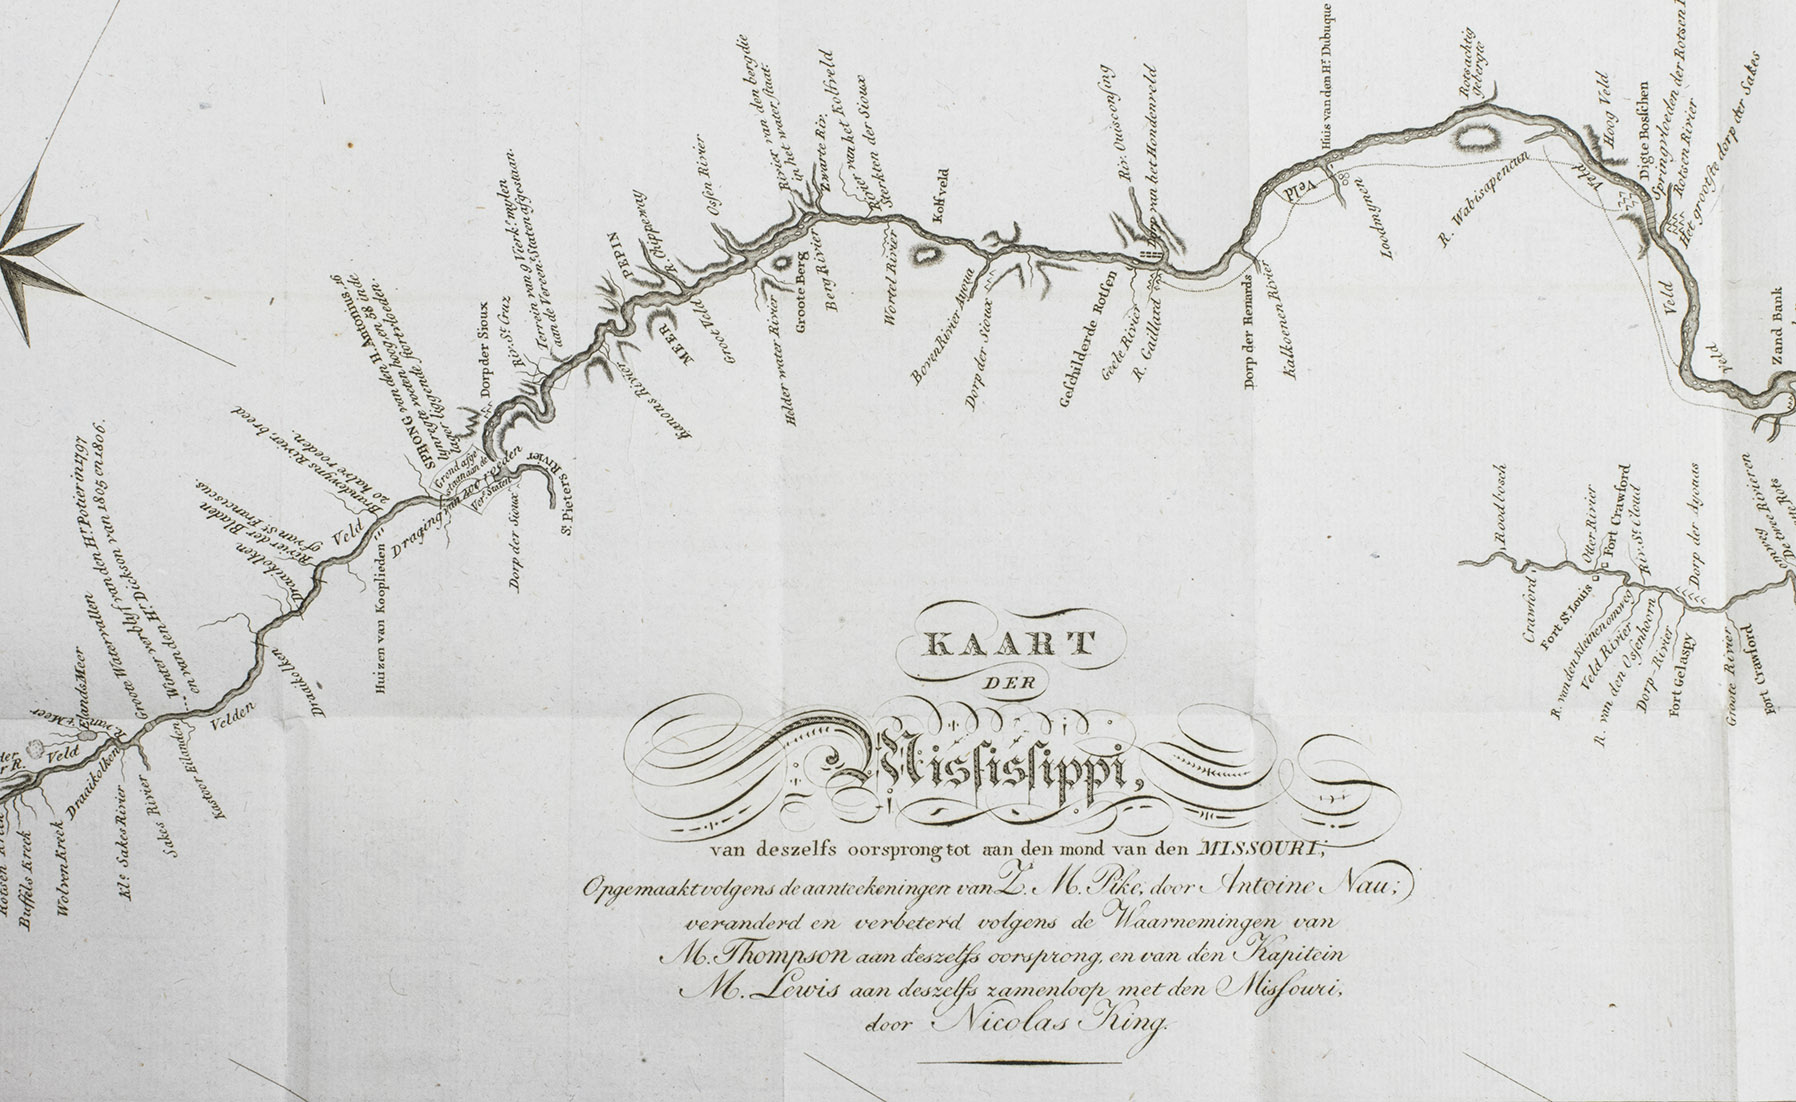 KAART
DER
Missisſippi,
van deszelfs oorsprong tot aan den mond van den MISSOURI,
Opgemaakt volgens de aanteekeningen van Z. M. Pike, door Antoine Nau;
veranderd en verbeterd volgens de Waarnemingen van
M. Thompson aan deszelfs oorsprong, en van den Kapitein
M. Lewis aan deszelfs zamenloop met den Misſouri,
door Nicolas King.
Buffels Kreek
Wolven Kreek
Veld
Draaikolken
Elands Meer
Kle. Sakes Rivier
Sakes Rivier
Groote Watervallen
Winter verblyf van den Hr. Potier in 1797
en van den Hr. Dickson van 1805 en 1806.
Velden
Draaikolken
Draaikolken
Rivier der Bladen
of van St. Franciscus.
Veld
Huizen van Kooplieden
Brandewyns Rivier, breed
20 halve roeden.
SPRONG van den H. Antonius, 16
Dorp der Sioux
Dorp der Sioux
St. Pieters Rivier
Riv. St. Cruz
Terrein van 9 Vierk. mylen
aan de Vereen. Staten afgestaan.
Kanons Rivier
MEER
PEPIN
R. Chippeway
Groot Veld
Osſen Rivier
Helder water Rivier
Groote Berg
Rivier van den berg die
in het water staat.
Berg Rivier
Zwarte Riv.
Rivier van het Kolfveld
Sterkten der Sioux
Wortel Rivier
Kolfveld
Boven Rivier Ayoua
Dorp der Sioux
Geſchilderde Rotſen
Geele Rivier
R. Gaillard
Riv. Ouisconſing
Dorp van het Hondenveld
Dorp der Renards
Kalkoenen Rivier
Veld
Huis van den Hr. Dubuque
Loodmynen
R. Wabisapencun
Rotsachtig
gebergte
Veld
Hoog Veld
Digte Bosſchen
Rotsen Rivier
Het grootſte dorp der Sakes
Veld
Veld
Zand Bank
Rondbosch
Crawford
Fort St. Louis
Otter Rivier
Fort Crawford
Riv. St. Cloud
R. van den Kleinen omweg
Veld Rivier
R. van den Osſenhoorn
Dorp-Rivier
Fort Gelaspy
Dorp der Ayouas
Groote Rivier
Fort Crawford